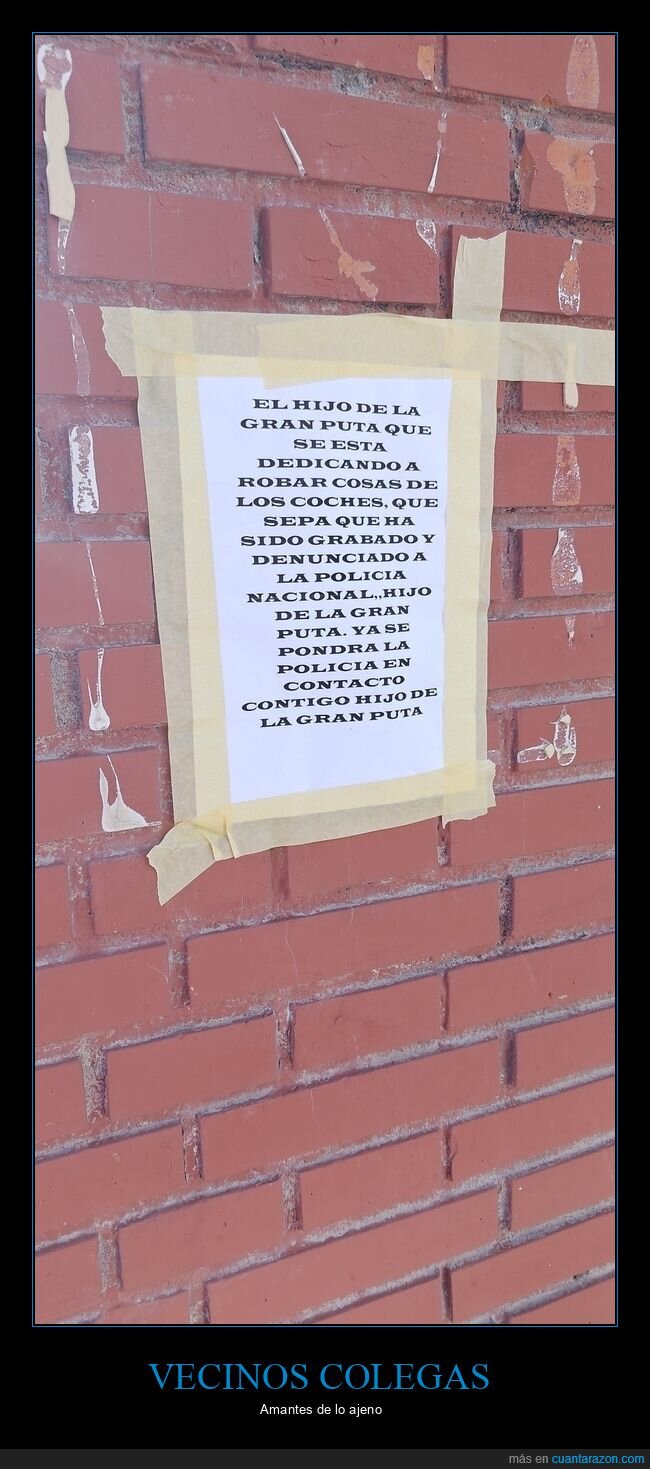 EL HIJO DE LA
GRAN PUTA QUE
SE ESTA
DEDICANDO A
ROBAR COSAS DE
LOS COCHES, QUE
SEPA QUE HA
SIDO GRABADO Y
DENUNCIADO A
LA POLICIA
NACIONAL,,HIJO
DE LA GRAN
PUTA. YA SE
PONDRA LA
POLICIA EN
CONTACTO
CONTIGO HIJO DE
LA GRAN PUTA
VECINOS COLEGAS
Amantes de lo ajeno
más en cuantarazon.com